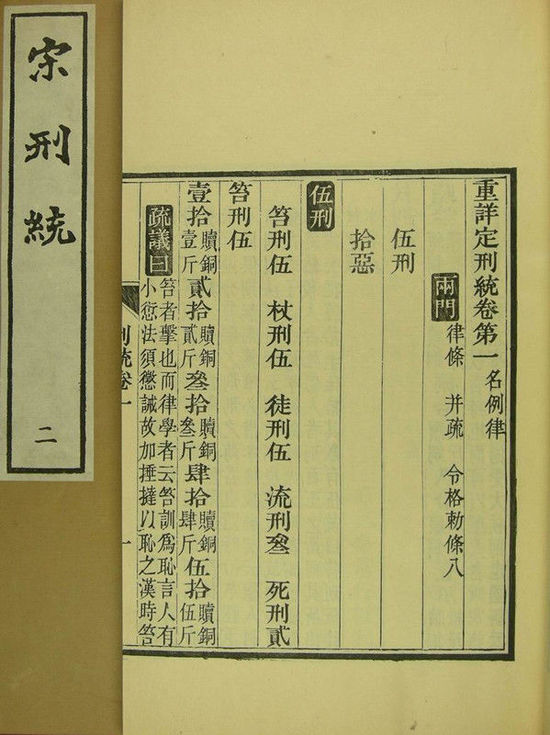 宋刑統
二
重詳定刑統卷第一 名例律
兩門 律條 并疏 令格勅條八
伍刑
拾惡
伍刑
笞刑伍 杖刑伍 徒刑伍 流刑叄 死刑貳
笞刑伍
壹拾贖銅壹斤貳拾贖銅貳斤叄拾贖銅叄斤肆拾贖銅肆斤伍拾贖銅伍斤
疏議曰笞者擊也而律學者云笞訓爲恥言人有
小愆法須懲誡故加捶撻以恥之漢時笞
刑統卷一
一